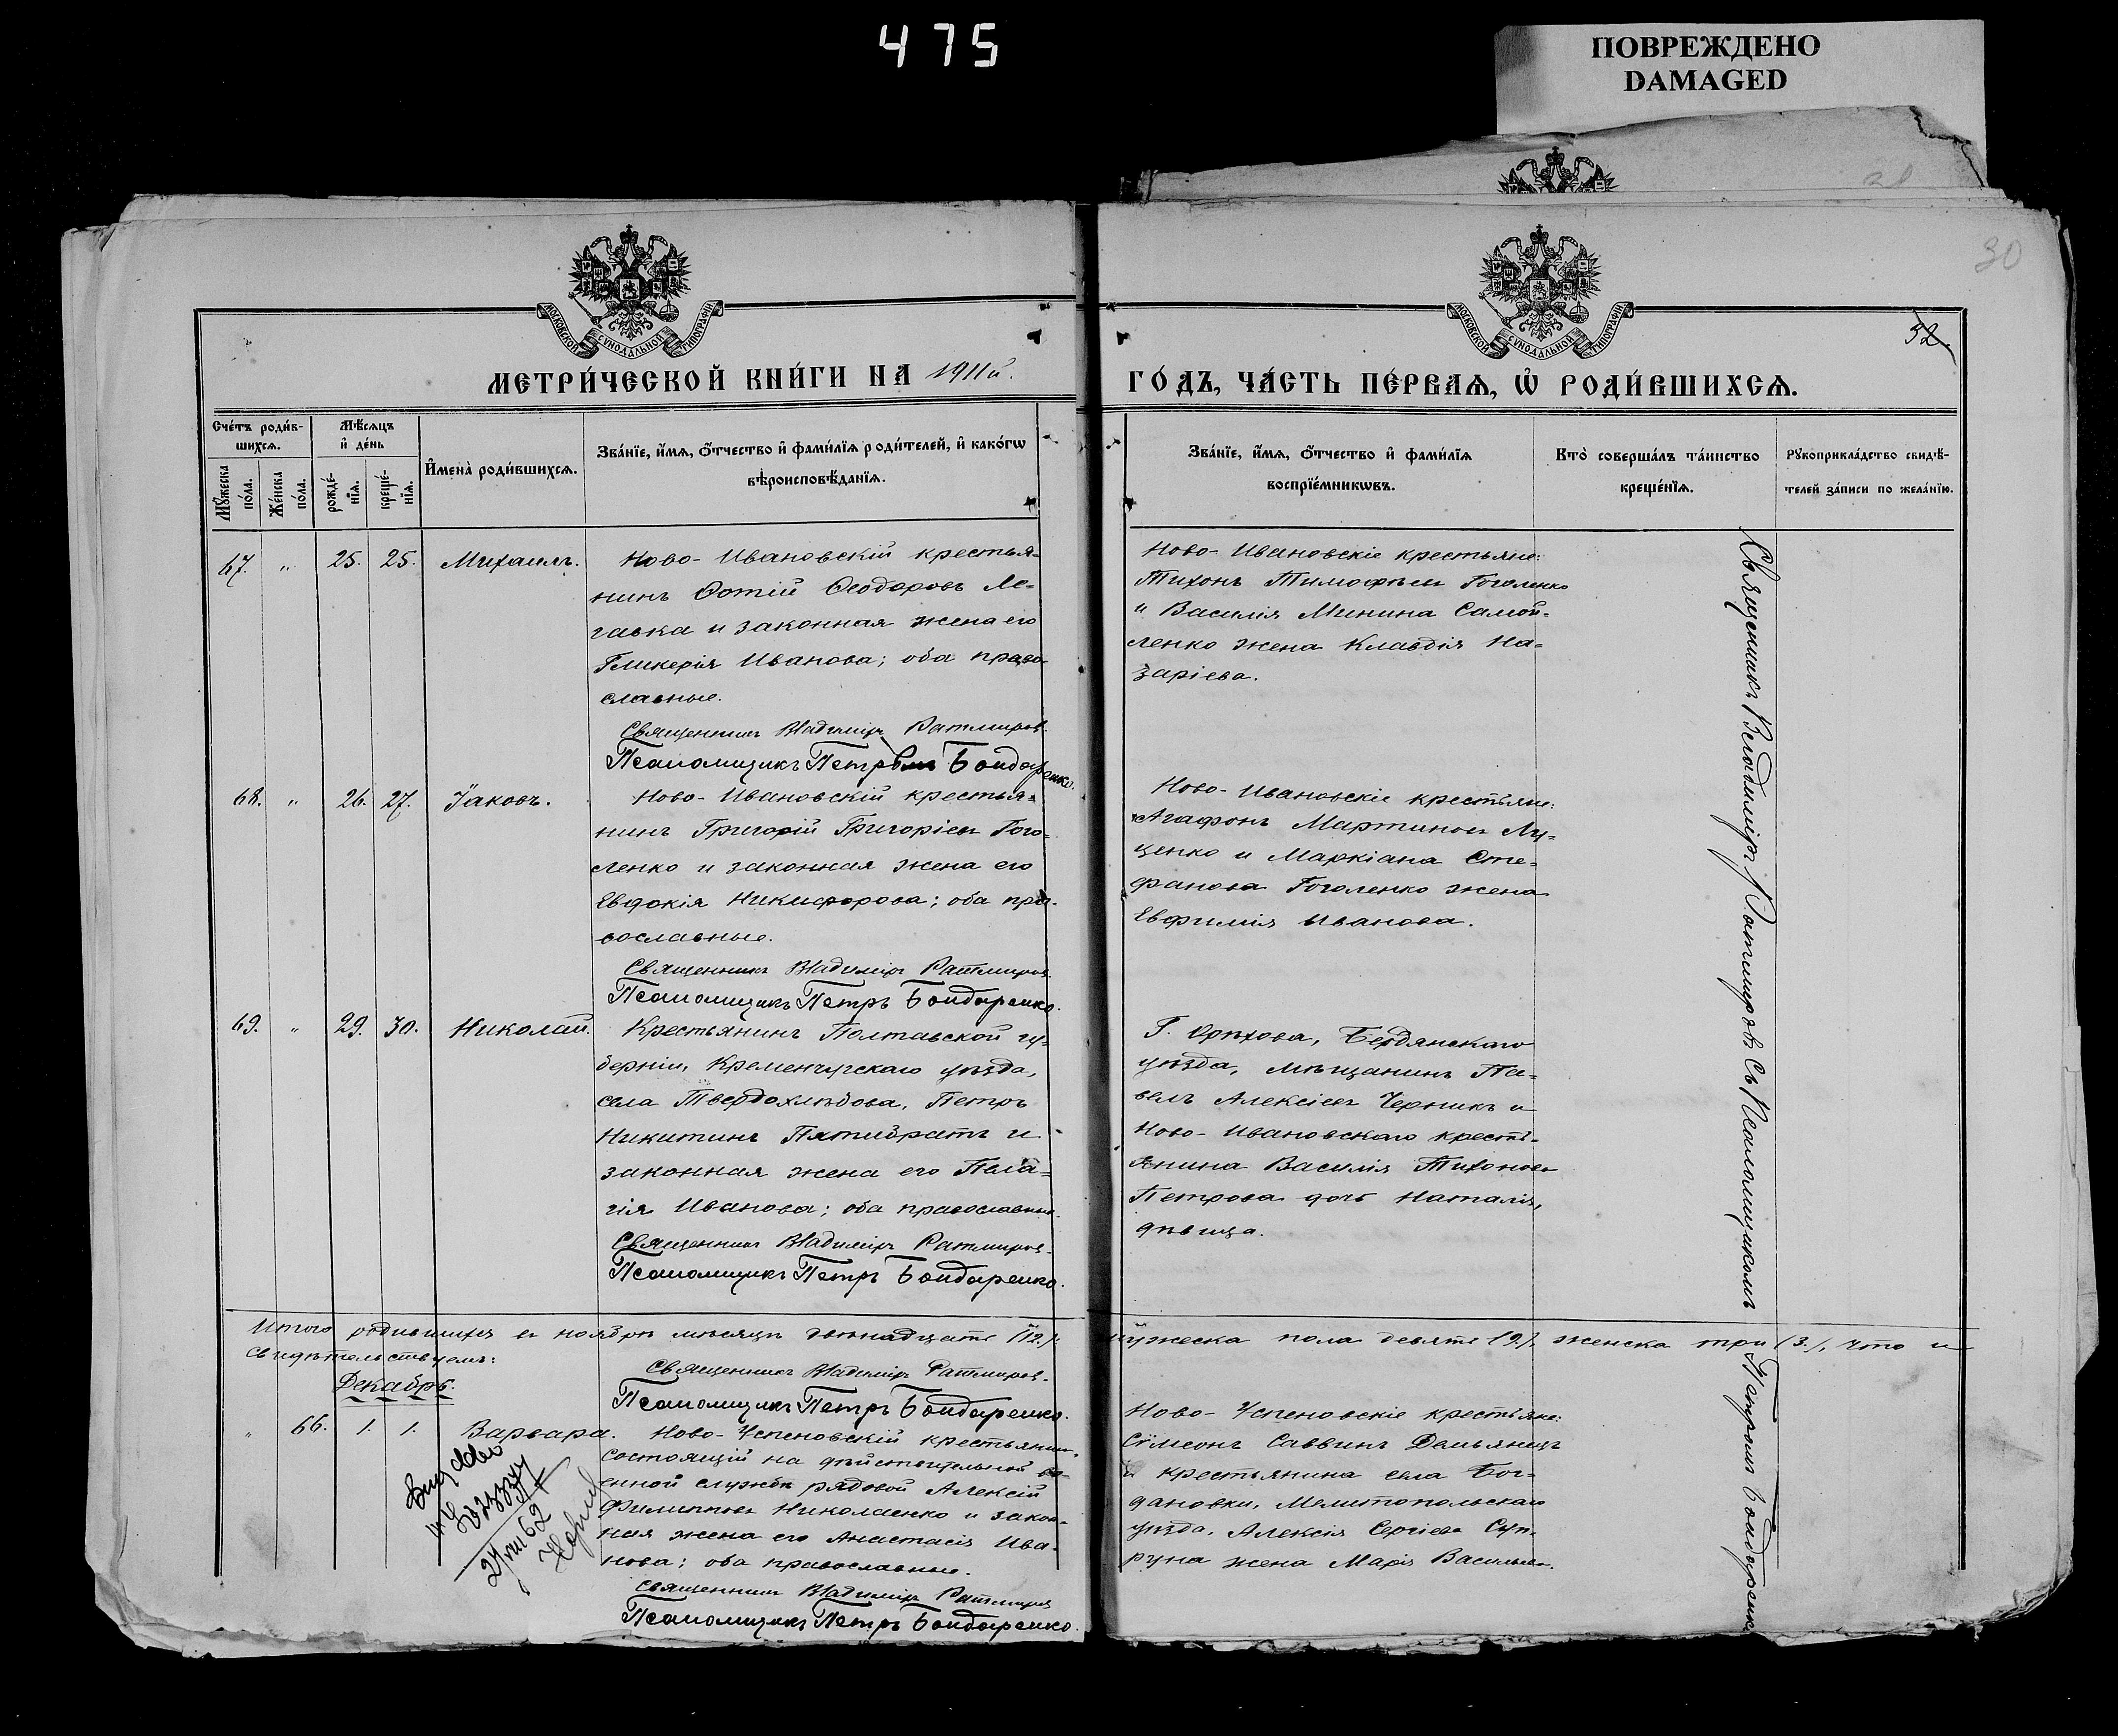 475
ПОВРЕЖДЕНО
DAMAGED
30
52.
МОСКОВСКОЙ СѴНОДАЛЬНОЙ ТИПОГРАФІИ
МОСКОВСКОЙ СѴНОДАЛЬНОЙ ТИПОГРАФІИ
МЕТРИ́ЧЕСКОЙ КНИ́ГИ НА 1911й.
ГО́ДЪ, ЧА́СТЬ ПЕ́РВАѦ, Ѡ҆ РОДИ́ВШИХСѦ.
Сче́тъ роди́в-
шихсѧ.
Мꙋ́жеска по́ла.
Же́нска по́ла.
Мѣ́сѧцъ
и҆ де́нь
рожде́-нїѧ.
креще́-нїѧ.
И҆мена̀ роди́вшихсѧ.
Зва́нїе, и҆́мѧ, ѻ҆́тчество и҆ фами́лїѧ роди́телей, и҆ како́гѡ
вѣроисповѣ́данїѧ.
Зва́нїе, и҆́мѧ, ѻ҆́тчество и҆ фами́лїѧ
воспрїе́мникѡвъ.
Кто̀ соверша́лъ та́инство
креще́нїѧ.
Рꙋкоприкла́дство свидѣ́-
телей за́писи по жела́нїю.
67. „ 25. 25. Михаилъ.
Ново-Ивановскій крестья-
нинъ Фотій Ѳеодоровъ Ле-
гавка и законная жена его
Гликерія Иванова; оба право-
славные.
Священникъ Владиміръ Ратмировъ.
Псаломщикъ Петръ Бондаренко.
Ново-Ивановскіе крестьяне:
Тихонъ Тимофѣевъ Гоголенко
и Василія Минина Самой-
ленко жена Клавдія На-
заріева.
68. „ 26. 27. Іаковъ.
Ново-Ивановскій крестья-
нинъ Григорій Григоріевъ Гого-
ленко и законная жена его
Евдокія Никифорова; оба пра-
вославные.
Священникъ Владиміръ Ратмировъ.
Псаломщикъ Петръ Бондаренко.
Ново-Ивановскіе крестьяне:
Агафонъ Мартиновъ Лу-
ценко и Маркіана Сте-
фанова Гоголенко жена
Евфимія Иванова.
69. „ 29. 30. Николай.
Крестьянинъ Полтавской гу-
берніи, Кременчугскаго уѣзда,
села Твердохлѣбова, Петръ
Никитинъ Пятибратъ и
законная жена его Пела-
гія Иванова; оба православные.
Священникъ Владиміръ Ратмировъ.
Псаломщикъ Петръ Бондаренко.
Г. Орѣхова, Бердянскаго
уѣзда, мѣщанинъ Па-
велъ Алексіевъ Черникъ и
Ново-Ивановскаго кресть-
янина Василія Тихонова
Петрова дочь Наталія,
дѣвица.
Итого родившихся въ ноябрѣ мѣсяцѣ двѣнадцать (12.): мужеска пола девять (9.), женска три (3.), что и
свидѣтельствуемъ:
Священникъ Владиміръ Ратмировъ.
Псаломщикъ Петръ Бондаренко.
Декабрь.
„ 66. 1. 1. Варвара.
Ново-Успеновскій крестьянинъ,
состоящій на дѣйствительной во-
енной службѣ рядовой Алексій
Филипповъ Николаенко и закон-
ная жена его Анастасія Ива-
нова; оба православные.
Священникъ Владиміръ Ратмировъ
Псаломщикъ Петръ Бондаренко.
Ново-Успеновскіе крестьяне:
Сѵмеонъ Саввинъ Демьянецъ
и крестьянина села Бог-
дановки, Мелитопольскаго
уѣзда, Алексія Сергіева Суп-
руна жена Марія Васильева.
Священникъ Владиміръ Ратмировъ Съ Псаломщикомъ
Петромъ Бондаренко